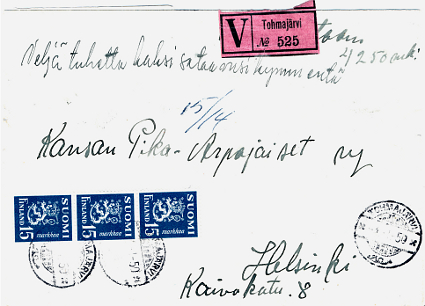 V Tohmajärvi
№ 525
4250 mk:
Neljä tuhatta kaksi sataa viisikymmentä
15/14
Kansan Pika-Arpajaiset ry
SUOMI FINLAND 15 markkaa
SUOMI FINLAND 15 markkaa
SUOMI FINLAND 15 markkaa
TOHMAJÄRVI
Helsinki
Kaivokatu. 8